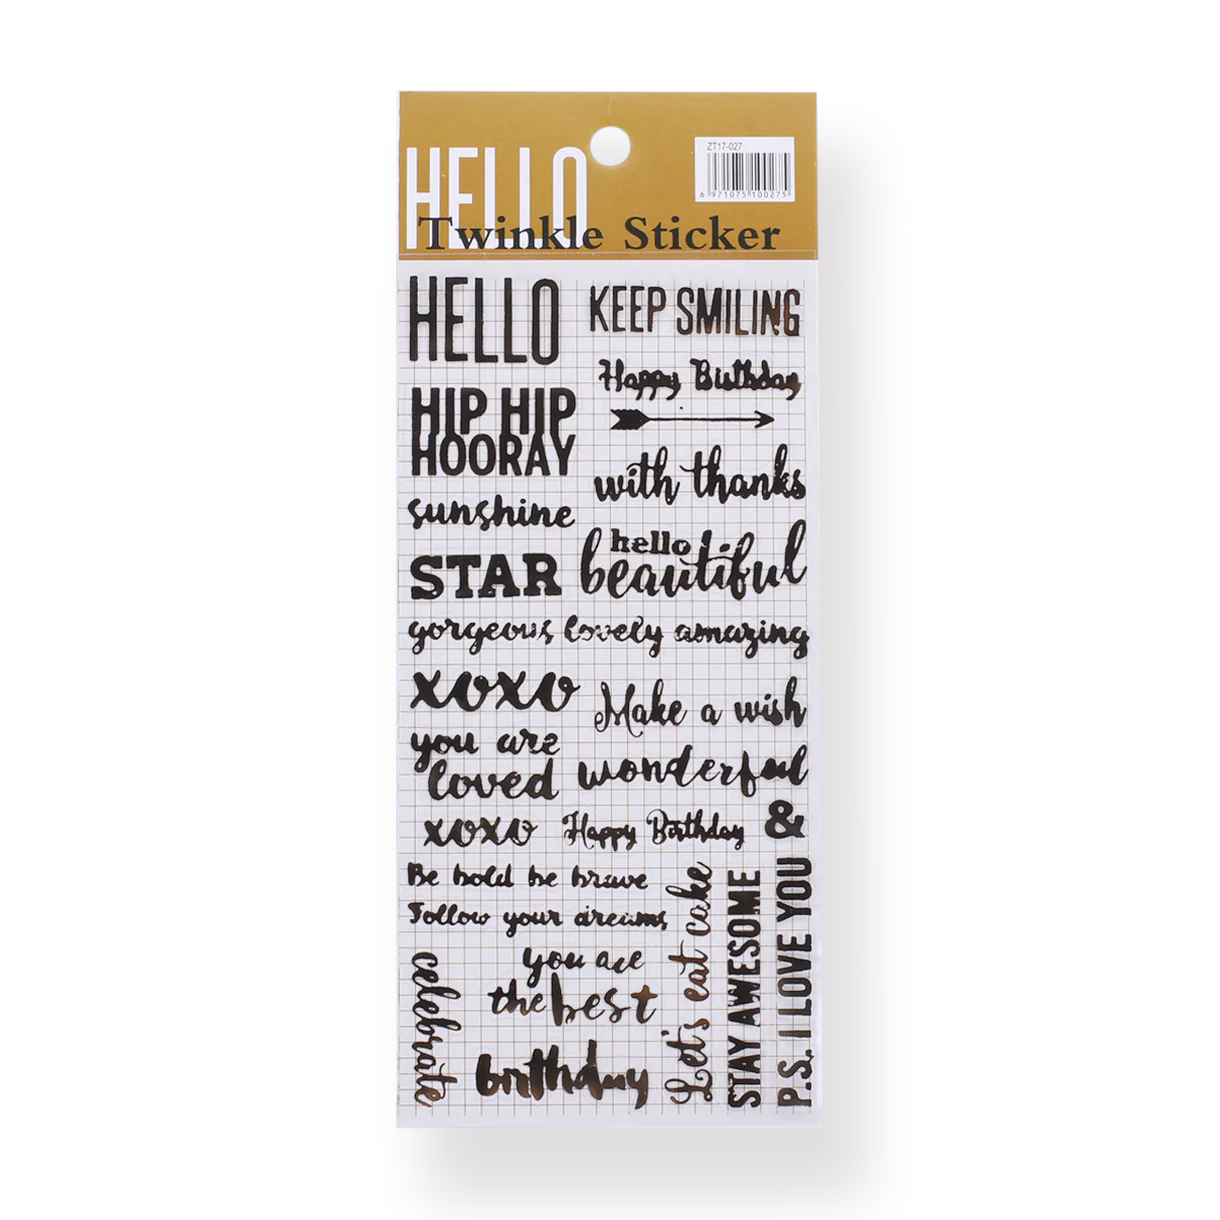 ZT17-027
6 971075 100275
HELLO
Twinkle Sticker
HELLO
KEEP SMILING
Happy Birthday
HIP HIP
HOORAY
with thanks
sunshine
hello
beautiful
STAR
gorgeous lovely amazing
xoxo
Make a wish
you are
loved
wonderful
xoxo
Happy Birthday
&
Be bold be brave
Follow your dreams
celebrate
you are
the best
birthday
Let's eat cake
STAY AWESOME
P.S. I LOVE YOU